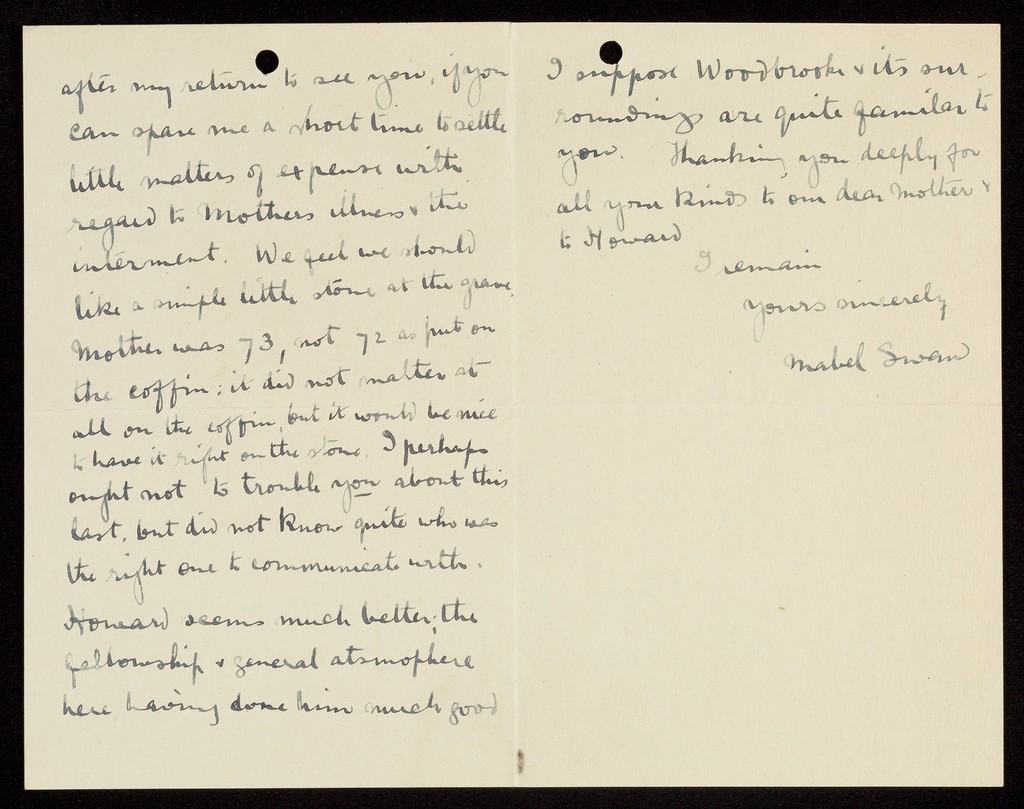 after my return to see you, if you
can spare me a short time to settle
little matters of expense with
regard to Mothers illness & the
interment. We feel we should
like a simple little stone at the grave.
Mother was 73, not 72 as put on
the coffin; it did not matter at
all on the coffin, but it would be nice
to have it right on the stone. I perhaps
ought not to trouble you about this
last, but did not know quite who was
the right one to communicate with.
Howard seems much better; the
fellowship & general atsmophere
here having done him much good
I suppose Woodbrooke & its sur-
roundings are quite familar to
you. Thanking you deeply for
all your kinds to our dear Mother &
to Howard
I remain
yours sincerely
Mabel Swan